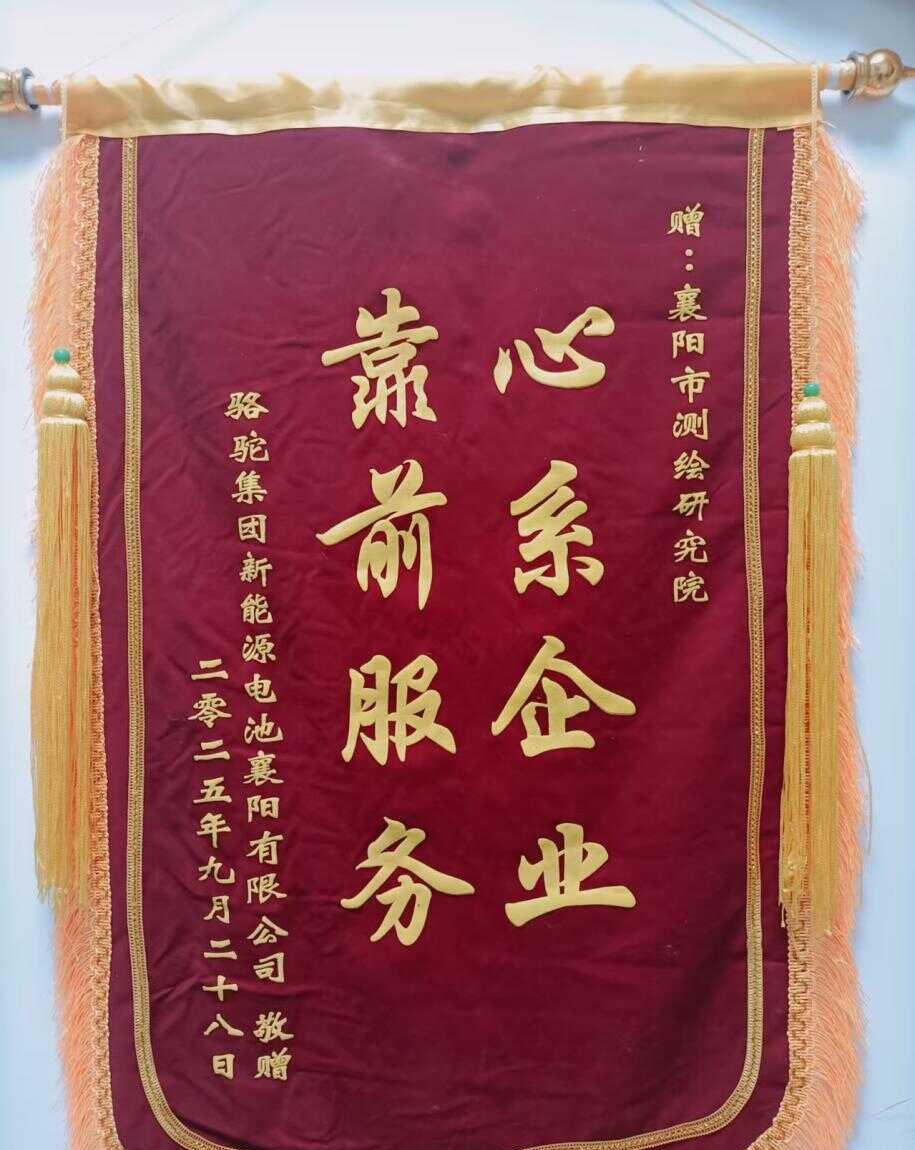 赠：襄阳市测绘研究院
心系企业
靠前服务
骆驼集团新能源电池襄阳有限公司 敬赠
二零二五年九月二十八日